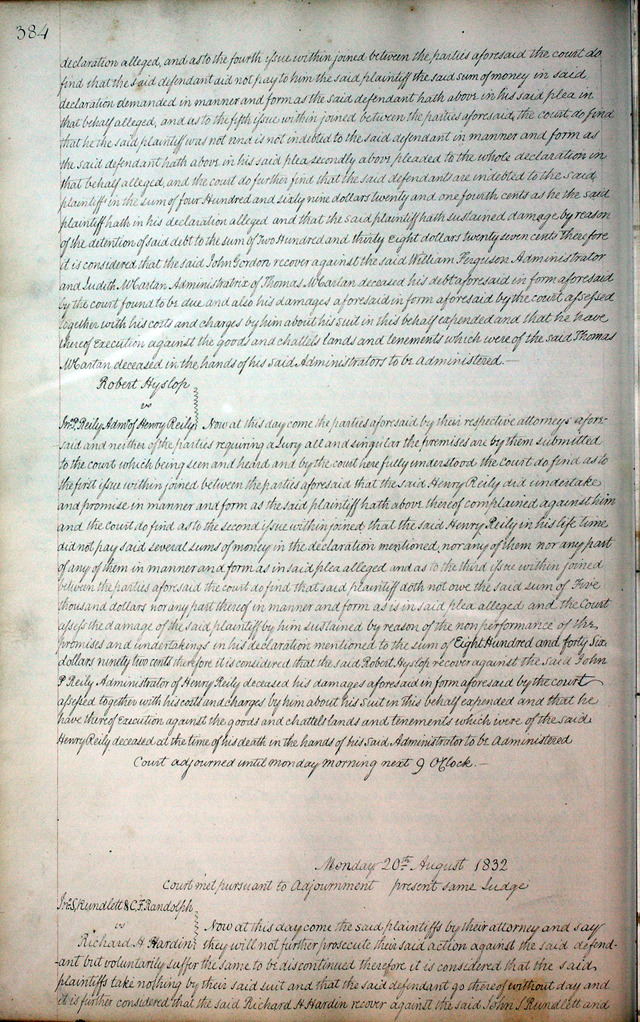 384
declaration alleged, and as to the fourth issue within joined between the parties aforesaid the court do
find that the said defendant did not pay to him the said plaintiff the said sum of money in said
declaration demanded in manner and form as the said defendant hath above in his said plea in
that behalf alleged, and as to the fifth issue within joined between the parties aforesaid, the court do find
that he the said plaintiff was not and is not indebted to the said defendant in manner and form as
the said defendant hath above in his said plea secondly above pleaded to the whole declaration in
that behalf alleged, and the court do further find that the said defendants are indebted to the said
plaintiff in the sum of four Hundred and sixty nine dollars twenty and one fourth cents as he the said
plaintiff hath in his declaration alleged and that the said plaintiff hath sustained damage by reason
of the detention of said debt to the sum of Two Hundred and thirty Eight dollars twenty seven cents Therefore
it is considered that the said John Gordon recover against the said William Ferguson Administrator
and Judith McCartan Administratrix of Thomas McCartan deceased his debt aforesaid in form aforesaid
by the court found to be due and also his damages aforesaid in form aforesaid by the court assessed
together with his costs and charges by him about his suit in this behalf expended and that he have
thereof Execution against the goods and chattels lands and tenements which were of the said Thomas
McCartan deceased in the hands of his said Administrators to be administered. —
Robert Hyslop
vs
Jno. P. Reily Admr of Henry Reily Now at this day come the parties aforesaid by their respective attorneys afore-
said and neither of the parties requiring a Jury all and singular the premises are by them submitted
to the court which being seen and heard and by the court here fully understood the court do find as to
the first issue within joined between the parties aforesaid that the said Henry Reily did undertake
and promise in manner and form as the said plaintiff hath above thereof complained against him
and the court do find as to the second issue within joined that the said Henry Reily in his life time
did not pay said several sums of money in the declaration mentioned, nor any of them nor any part
of any of them in manner and form as in said plea alleged and as to the third issue within joined
between the parties aforesaid the court do find that said plaintiff doth not owe the said sum of Five
thousand dollars nor any part thereof in manner and form as is in said plea alleged and the Court
assess the damage of the said plaintiff by him sustained by reason of the non performance of the
promises and undertakings in his declaration mentioned to the sum of Eight Hundred and forty Six
dollars ninety two cents therefore it is considered that the said Robert Hyslop recover against the Said John
P Reily Administrator of Henry Reily deceased his damages aforesaid in form aforesaid by the court
assessed together with his costs and charges by him about his Suit in this behalf expended and that he
have thereof Execution against the goods and chattels lands and tenements which were of the said
Henry Reily deceased at the time of his death in the hands of his said Administrator to be Administered
Court adjourned until monday morning next 9 O'Clock. —
Monday 20th August 1832
Court met pursuant to Adjournment present same Judge
Jno. S. Rundlett & C. F. Randolph
vs
Now at this day come the said plaintiffs by their attorney and say
Richard H Hardin they will not further prosecute their said action against the said defend-
ant but voluntarily suffer the same to be discontinued therefore it is considered that the said
plaintiffs take nothing by their said suit and that the said defendant go thereof without day and
it is further considered that the said Richard H Hardin recover against the said John S Rundlett and